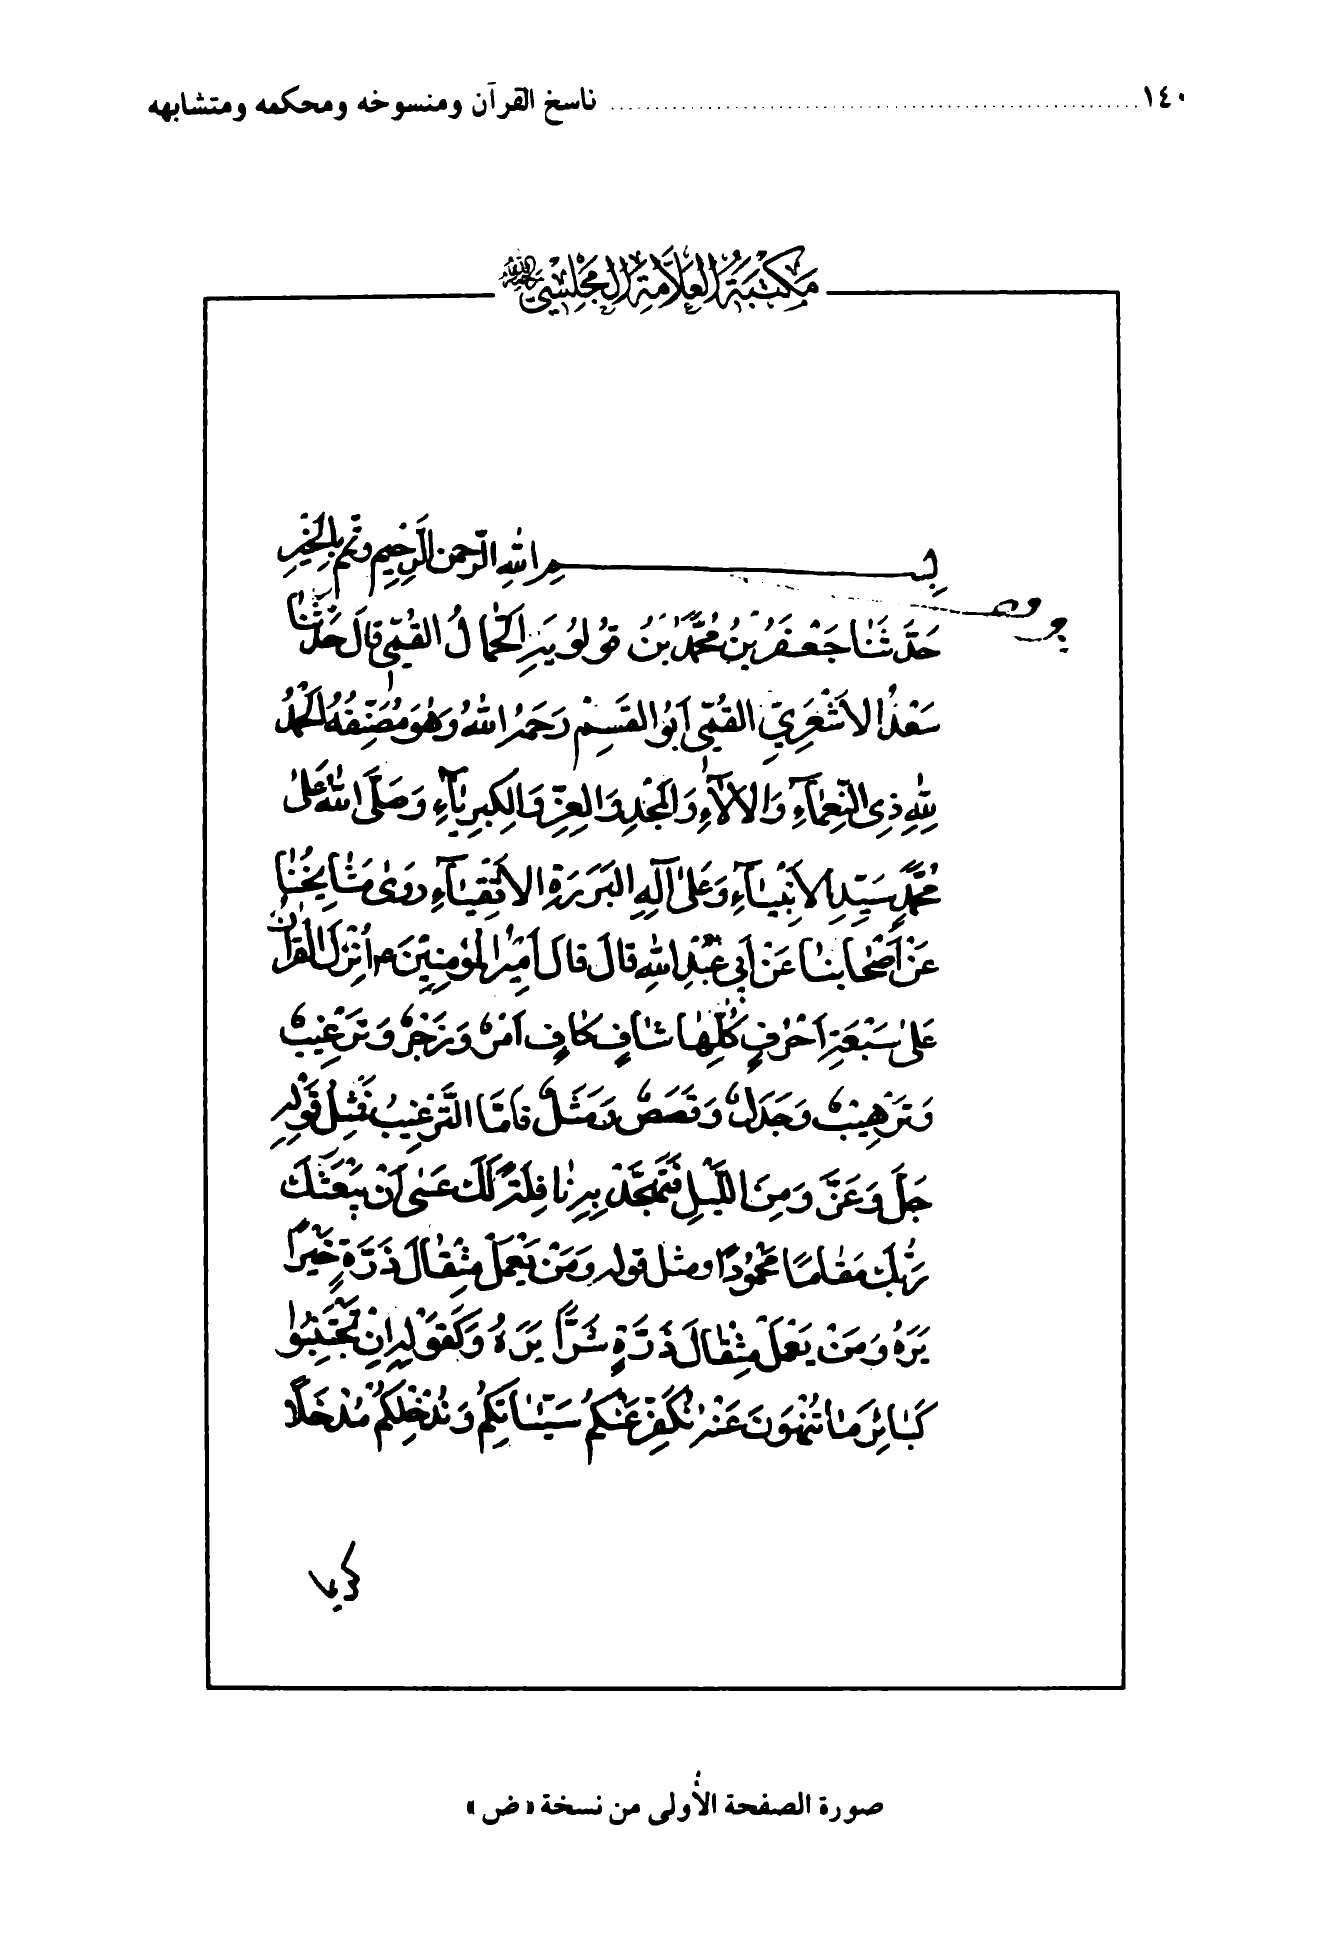 ١٤٠ ........ ناسخ القرآن ومنسوخه ومحكمه ومتشابهه
مَكتَبَةُ العَلّامَةِ المَجلِسيّ
بسم الله الرحمن الرحيم وتمم بالخير
حَدَّثَنَا جَعْفَرُ بْنُ مُحَمَّدِ بْنُ قُولُويَه الجَمّالُ القُمِّي قالَ حَدَّثَنَا
سَعْدُ الاَشْعَرِيّ القُمِّي اَبُو القَسِمْ رَحَمَهُ اللهُ وَهُوَ مُصَنِّفُهُ الحَمْدُ
لِلّٰهِ ذِي النَّعْمَاءِ وَالالاَءِ وَالمَجْدِ وَالعِزِّ وَالكِبرِيَاءِ وَصَلَّى اللهُ عَلىٰ
مُحَمَّدٍ سَيِّدِ الاَنْبِيَاءِ وَعَلىٰ آلِهِ البَرَرَةِ الاَتْقِيَاءِ روَىٰ مَشَايِخُنَا
عَنْ اَصْحَابِنَا عَنْ اَبِي عَبْدِ اللهِ قالَ قالَ اَمِيْرُ المُؤمِنِيْنَ م اُنْزِلَ القُرآنُ
عَلىٰ سَبْعَةِ اَحْرُفٍ كُلُّهَا شَافٍ كَافٍ اَمْرٌ وَزَجْرٌ وَتَرْغِيبٌ
وَتَرْهِيبٌ وَجَدَلٌ وَقَصَصٌ وَمَثَلٌ فَامَّا التَّرْغِيبُ فَمِثْلُ قَوْلِهِ
جَلَّ وَعَزَّ وَمِنَ اللَّيْلِ فَتَهَجَّدْ بِهِ نَافِلَةً لَكَ عَسىٰ اَنْ يَبْعَثَكَ
رَبُّكَ مَقَامًا مَحْمُودًا ومثل قوله وَمَنْ يَعْمَلْ مِثْقَالَ ذَرَّةٍ خَيْرًا
يَرَهُ وَمَنْ يَعْمَلْ مِثْقَالَ ذَرَّةٍ شَرًّا يَرَهُ وَكَقَوْلِهِ اِنْ تَجْتَنِبُوا
كَبَائِرَ مَا تُنْهَوْنَ عَنْهُ نُكَفِّرْ عَنْكُمْ سَيِّئَاتِكُمْ وَنُدْخِلْكُمْ مُدْخَلًا
كريما
صورة الصفحة الأُولى من نسخة «ض»